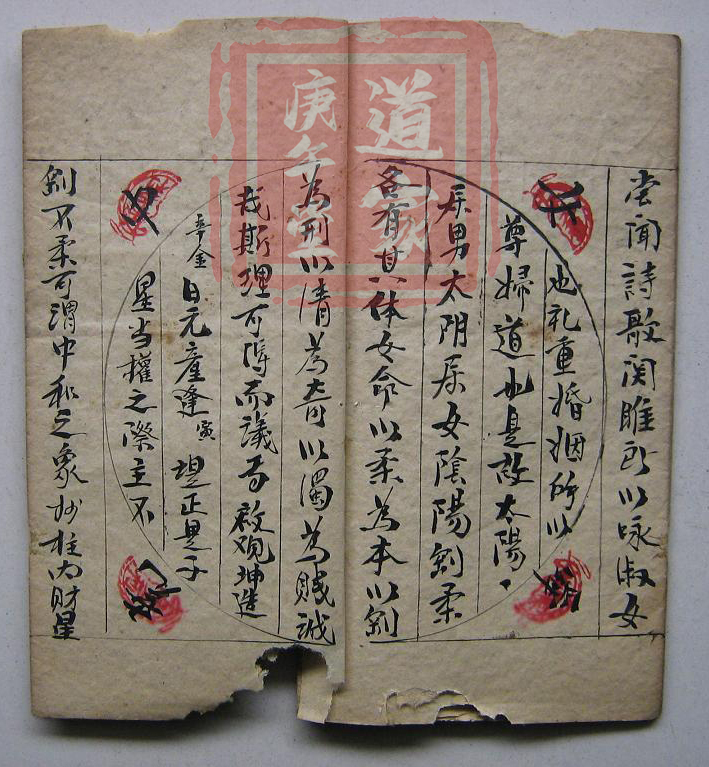 尝闻詩歌関雎所以咏淑女
也礼重婚姻所以
尊婦道也是故太陽、
居男太阴居女陰陽剛柔
各有其体女命以柔為本以剛
為刑以清為奇以濁為贱誠
哉斯理可得而議焉啟观坤造
辛金日元産逢寅提正是子
星当權之際主不
剛不柔可谓中和之象妙柱内财星
道
庚